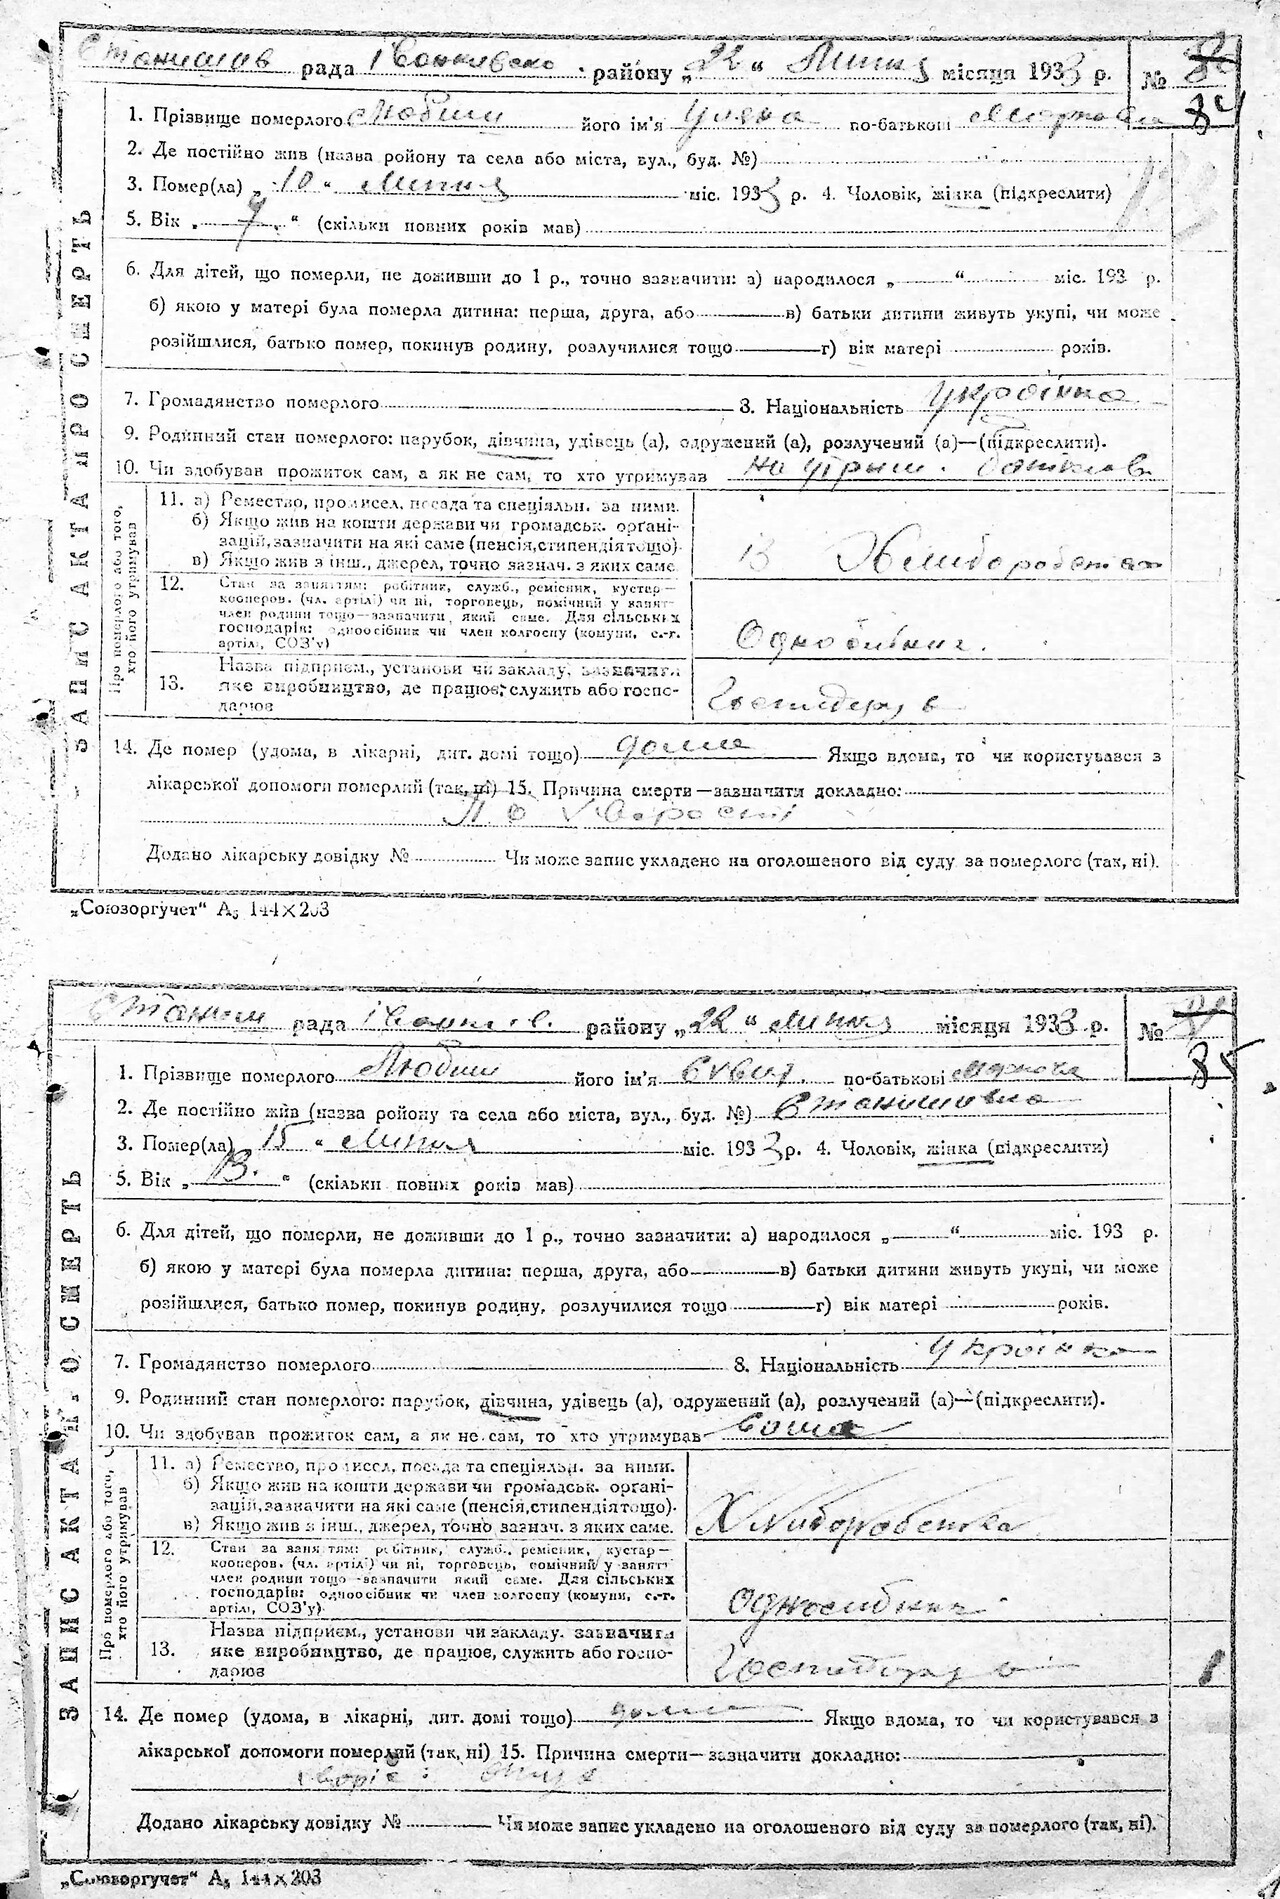 Станишів рада Іванківсько району „22“ Липня місяця 1933 р. № 84
ЗАПИС АКТА ПРО СМЕРТЬ
1. Прізвище померлого Любиш його ім'я Уляна по-батькові Марковна
2. Де постійно жив (назва ройону та села або міста, вул., буд. №)
3. Помер(ла) „10“ Липня міс. 1933 р. 4. Чоловік, жінка (підкреслити)
5. Вік „ “ (скільки повних років мав)
6. Для дітей, що померли, не доживши до 1 р., точно зазначити: а) народилося „ “ міс. 193 р.
б) якою у матері була померла дитина: перша, друга, або в) батьки дитини живуть укупі, чи може
розійшлися, батько помер, покинув родину, розлучилися тощо г) вік матері років.
7. Громадянство померлого 8. Національність українка
9. Родинний стан померлого: парубок, дівчина, удівець (а), одружений (а), розлучений (а)—(підкреслити).
10. Чи здобував прожиток сам, а як не сам, то хто утримував на утрим. батьків
Про померлого або того, хто його утримував
11. а) Ремество, промисел, посада та спеціяльн. за ними.
б) Якщо жив на кошти держави чи громадськ. орґані-
зацій, зазначити на які саме (пенсія, стипендія тощо).
в) Якщо жив з інш., джерел, точно зазнач. з яких саме
Хлиборобство
12. Стан за заняттям: робітник, служб., ремісник, кустар—
кооперов. (чл. артілі) чи ні, торговець, помічний у занят-
член родини тощо—зазначити, який саме. Для сільських
господарів: одноосібник чи член колгоспу (комуни, с.-г.
артілі, СОЗ'у)
Одноосібник.
13. Назва підприєм., установи чи закладу, зазначити
яке виробництво, де працює, служить або госпо-
дарює
14. Де помер (удома, в лікарні, дит. домі тощо) дома Якщо вдома, то чи користувався з
лікарської допомоги померлий (так, ні) 15. Причина смерти—зазначити докладно:
Додано лікарську довідку № Чи може запис укладено на оголошеного від суду за померлого (так, ні).
„Союзоргучет“ А5 144×203
Станиш рада Іванків. району „22“ Липня місяця 1933 р. № 85
ЗАПИС АКТА ПРО СМЕРТЬ
1. Прізвище померлого Любиш його ім'я по-батькові
2. Де постійно жив (назва ройону та села або міста, вул., буд. №) Станишовка
3. Помер(ла) 15 “ Липня міс. 1933 р. 4. Чоловік, жінка (підкреслити)
5. Вік „13.“ (скільки повних років мав)
6. Для дітей, що померли, не доживши до 1 р., точно зазначити: а) народилося „ “ міс. 193 р.
б) якою у матері була померла дитина: перша, друга, або в) батьки дитини живуть укупі, чи може
розійшлися, батько помер, покинув родину, розлучилися тощо г) вік матері років.
7. Громадянство померлого 8. Національність українка
9. Родинний стан померлого: парубок, дівчина, удівець (а), одружений (а), розлучений (а)—(підкреслити).
10. Чи здобував прожиток сам, а як не сам, то хто утримував сама
Про померлого або того, хто його утримував
11. а) Ремество, промисел, посада та спеціяльн. за ними.
б) Якщо жив на кошти держави чи громадськ. орґані-
зацій, зазначити на які саме (пенсія, стипендія тощо).
в) Якщо жив з інш., джерел, точно зазнач. з яких саме.
Хлиборобства
12. Стан за заняттям: робітник, служб., ремісник, кустар—
кооперов. (чл. артілі) чи ні, торговець, помічний у занятт
член родини тощо—зазначити який саме. Для сільських
господарів: одноосібник чи член колгоспу (комуни, с.-г.
артілі, СОЗ'у).
Одноосибник
13. Назва підприєм., установи чи закладу. зазначити
яке виробництво, де працює, служить або госпо-
дарює
14. Де помер (удома, в лікарні, дит. домі тощо) дома Якщо вдома, то чи користувався з
лікарської допомоги померлий (так, ні) 15. Причина смерти—зазначити докладно:
Додано лікарську довідку № Чи може запис укладено на оголошеного від суду за померлого (так, ні).
„Союзоргучет“ А5 144×203